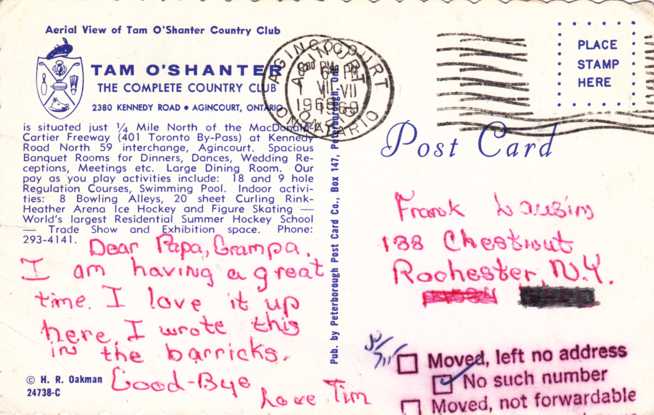 Aerial View of Tam O'Shanter Country Club
TAM O'SHANTER
THE COMPLETE COUNTRY CLUB
2380 KENNEDY ROAD • AGINCOURT, ONTARIO
is situated just ¼ Mile North of the MacDonald-
Cartier Freeway (401 Toronto By-Pass) at Kennedy
Road North 59 interchange, Agincourt. Spacious
Banquet Rooms for Dinners, Dances, Wedding Re-
ceptions, Meetings etc. Large Dining Room. Our
pay as you play activities include: 18 and 9 hole
Regulation Courses, Swimming Pool. Indoor activi-
ties: 8 Bowling Alleys, 20 sheet Curling Rink-
Heather Arena Ice Hockey and Figure Skating —
World's largest Residential Summer Hockey School
— Trade Show and Exhibition space. Phone:
293-4141.
Dear Papa, Grampa.
I am having a great
time. I love it up
here. I wrote this
in the barricks.
Good-Bye
Love Tim
© H. R. Oakman
24738-C
Pub. by Peterborough Post Card Co., Box 147, Peterborough, Ont.
AGINCOURT
ONTARIO
PM
VII
1969
PLACE
STAMP
HERE
Post Card
Frank
138 Chestnut
Rochester, N.Y.
Moved, left no address
No such number
Moved, not forwardable